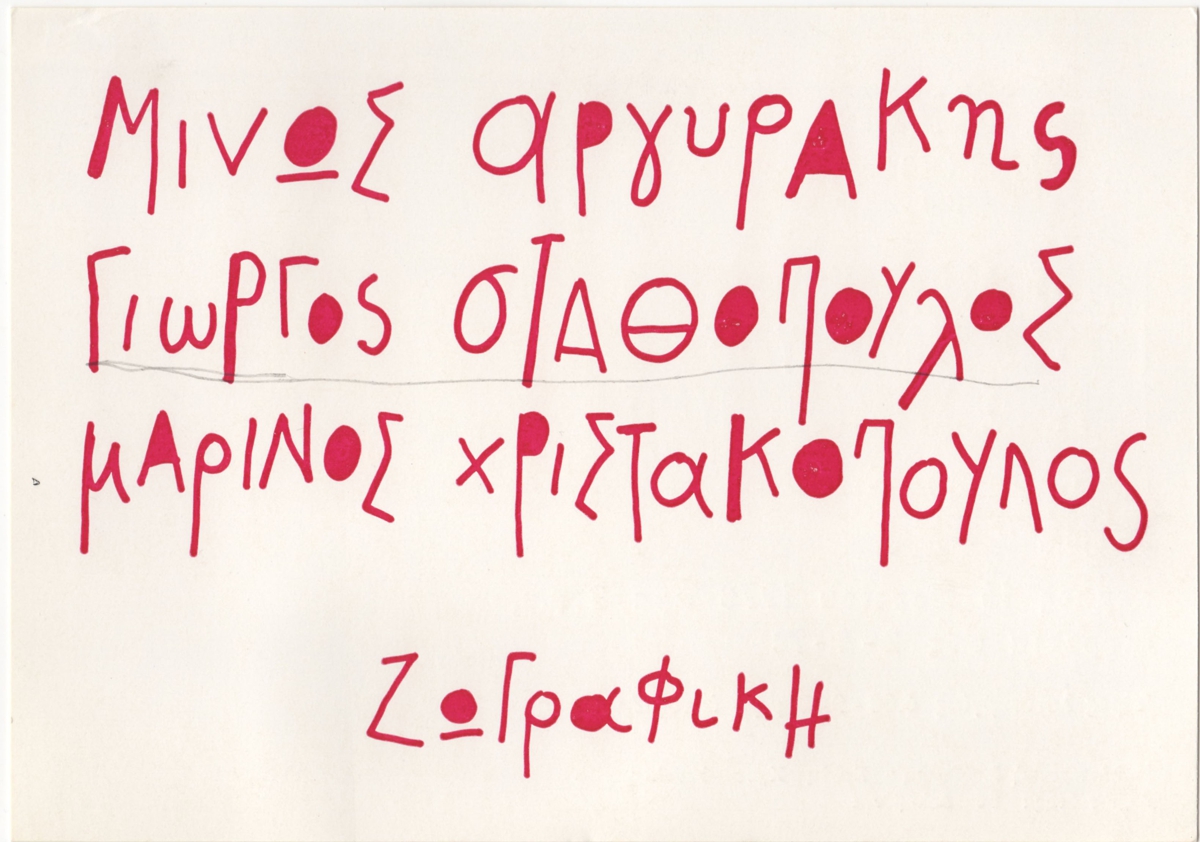 Μινως αργυρακης
Γιωργος σταθοπουλος
μαρινος χριστακοπουλος
Ζωγραφικη